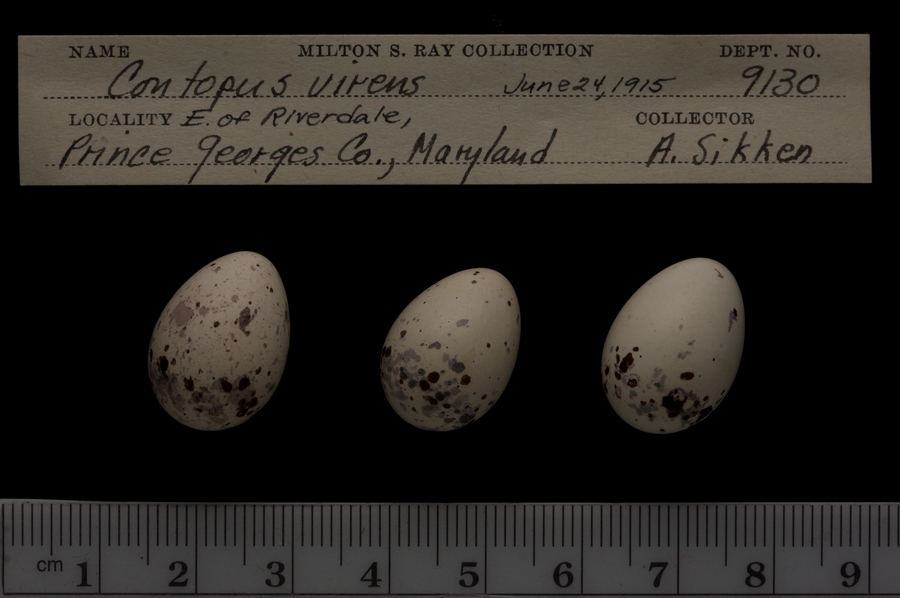 NAME MILTON S. RAY COLLECTION DEPT. NO.
Contopus virens June 24, 1915 9130
LOCALITY E. of Riverdale, COLLECTOR
Prince Georges Co., Maryland A. Sikken
cm 1 2 3 4 5 6 7 8 9